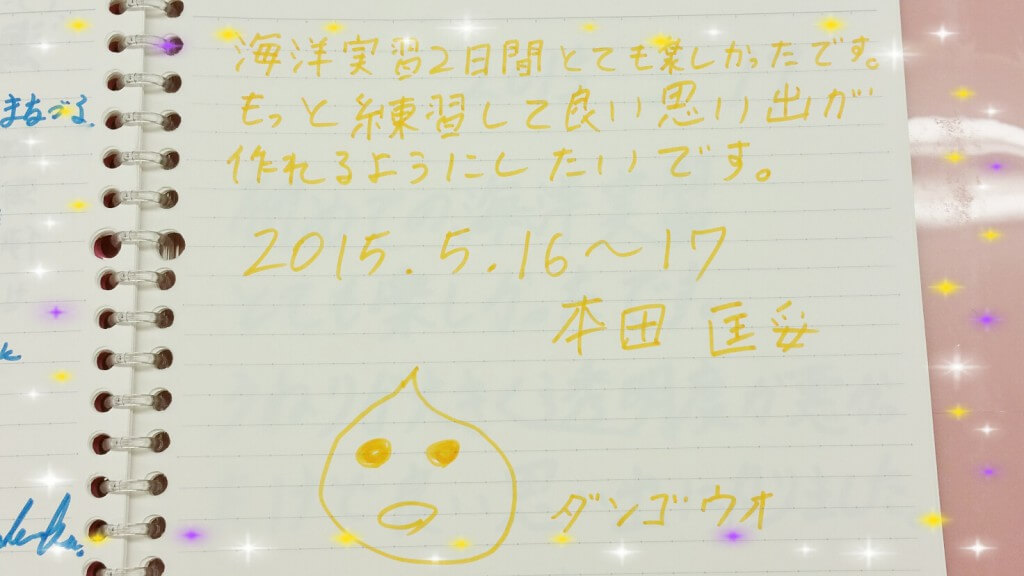 海洋実習2日間とても楽しかったです。
もっと練習して良い思い出が
作れるようにしたいです。
2015.5.16〜17
本田 匡妥
ダンゴウオ
まなづる